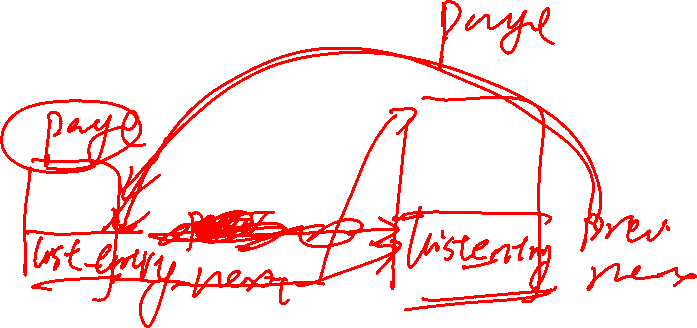 page
page
list entry
next
list entry
prev
next